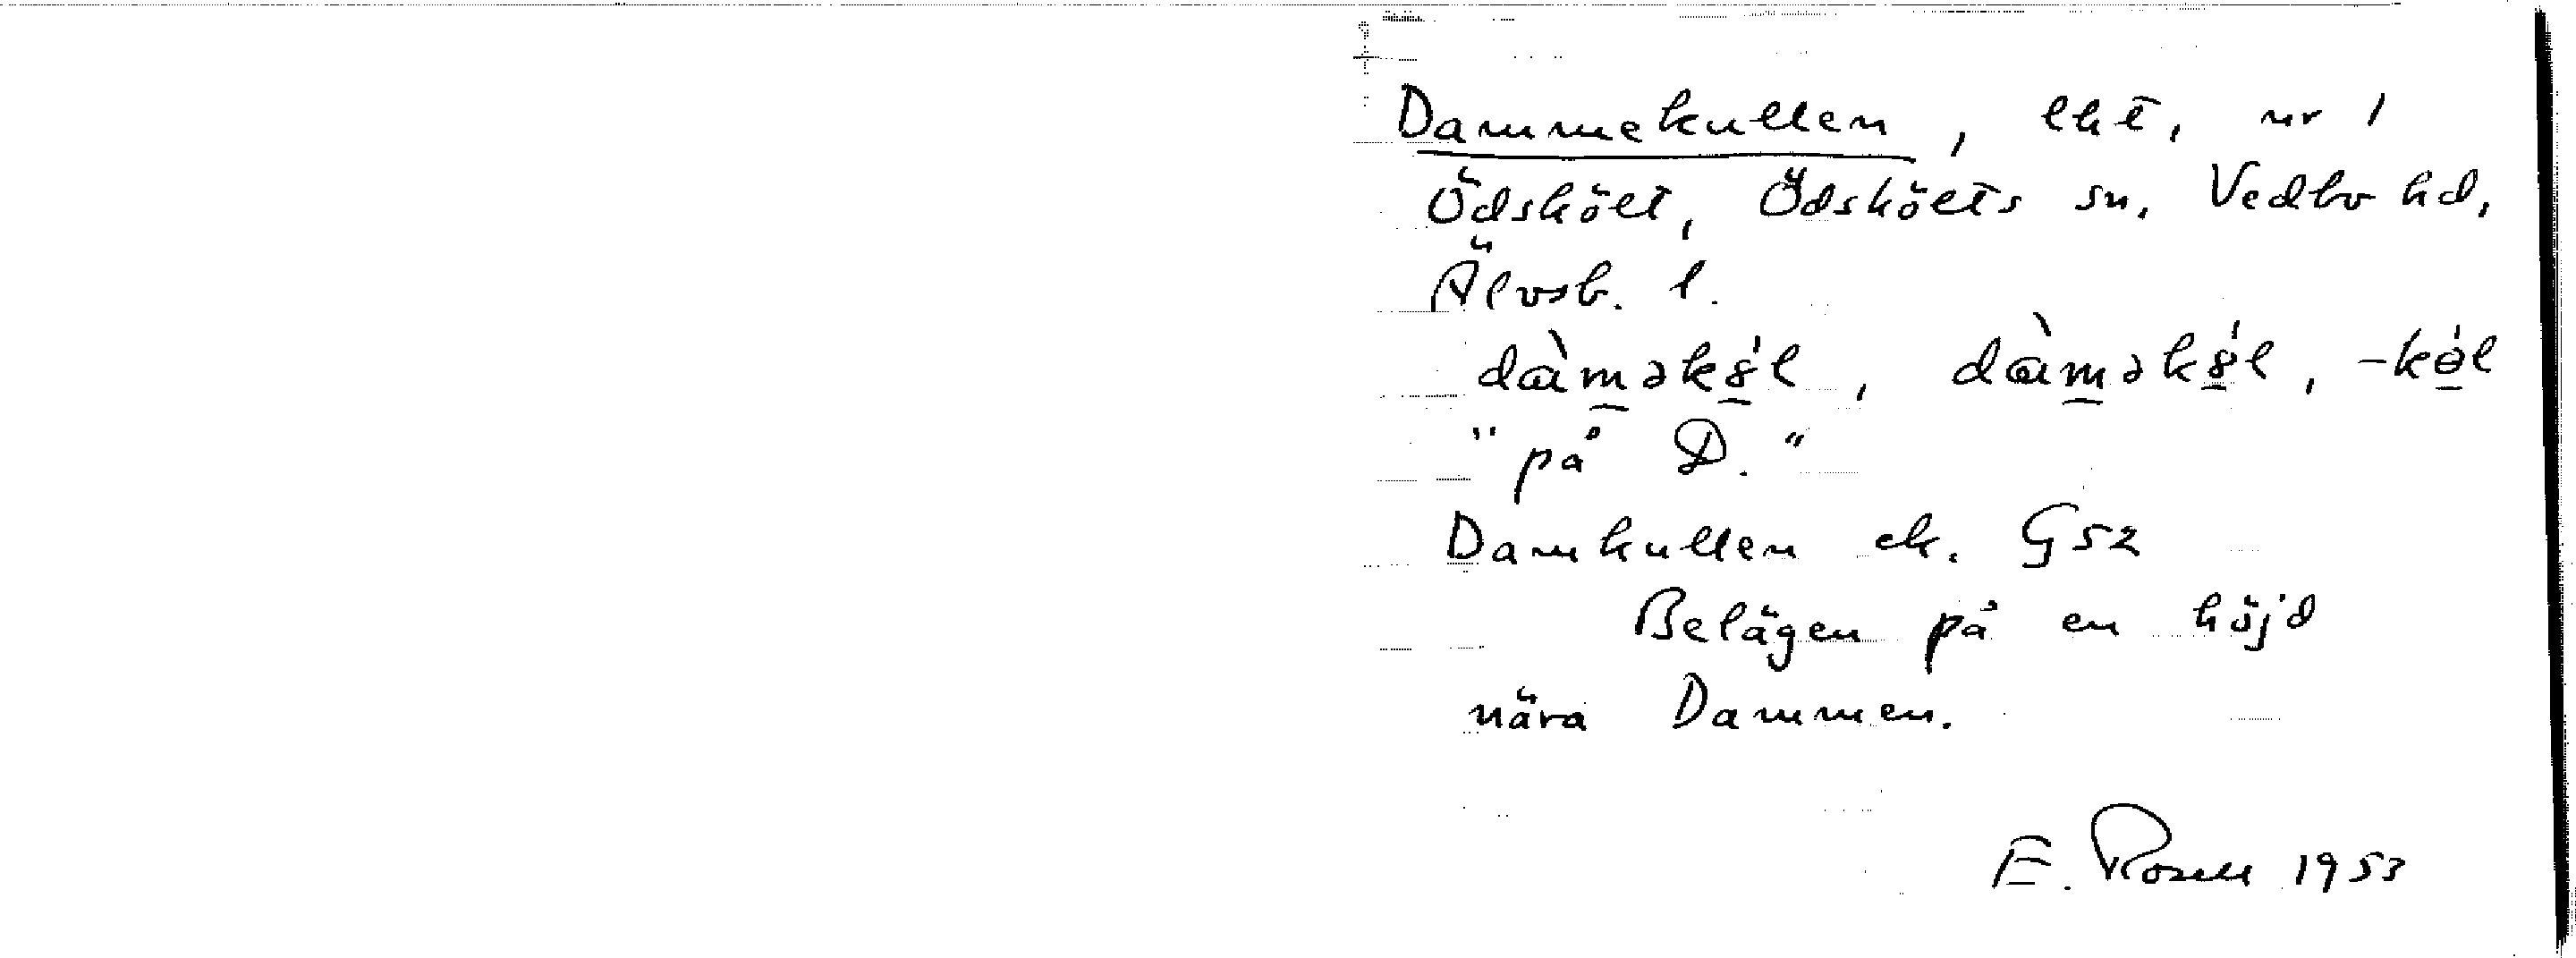 Dammekullen, lht, nr 1
Ödskölt, Ödskölts sn, Vedbo hd,
Älvsb. l.
"på D."
Damkullen ek. G52
Belägen på en höjd
nära Dammen.
E. Rosell 1953